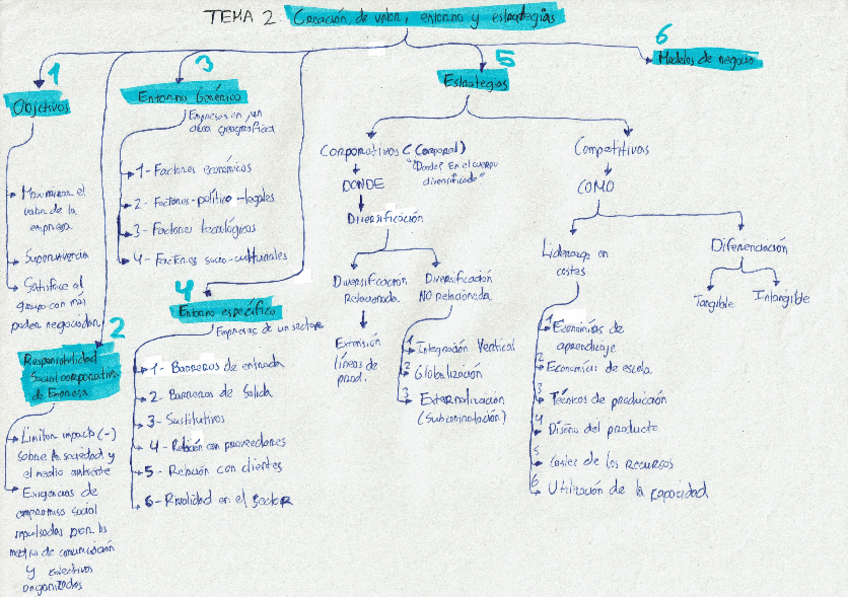 TEMA 2: Creación de valor, entorno y estrategias
1
Objetivos
Maximizar el
valor de la
empresa
Supervivencia
Satisface al
grupo con más
poder negociador
2
Responsabilidad
Social corporativa
de Empresa
Limitar impacto (-)
sobre la sociedad y
el medio ambiente
Exigencias de
compromiso social
impulsadas por los
medios de comunicación
y colectivos
organizados
3
Entorno Genérico
Empresas en un
área geográfica
1- Factores económicos
2- Factores-político-legales
3- Factores tecnológicos
4- Factores socio-culturales
4
Entorno específico
Empresas de un sector
1- Barreras de entrada
2- Barreras de Salida
3- Sustitutivos
4- Relación con proveedores
5- Relación con clientes
6- Rivalidad en el sector
5
Estrategias
Corporativas C (Corporal)
"Donde? En el cuerpo
diversificado"
DONDE
Diversificación
Diversificación
Relacionada
Extensión
líneas de
prod.
Diversificación
NO relacionada
1 Integración Vertical
2 Globalización
3 Externalización
(Subcontratación)
Competitivas
COMO
Liderazgo en
costes
1 Economías de
aprendizaje
2 Economías de escala
3 Técnicas de producción
4 Diseño del producto
5 Costes de los recursos
6 Utilización de la capacidad
Diferenciación
Tangible
Intangible
6
Modelos de negocio